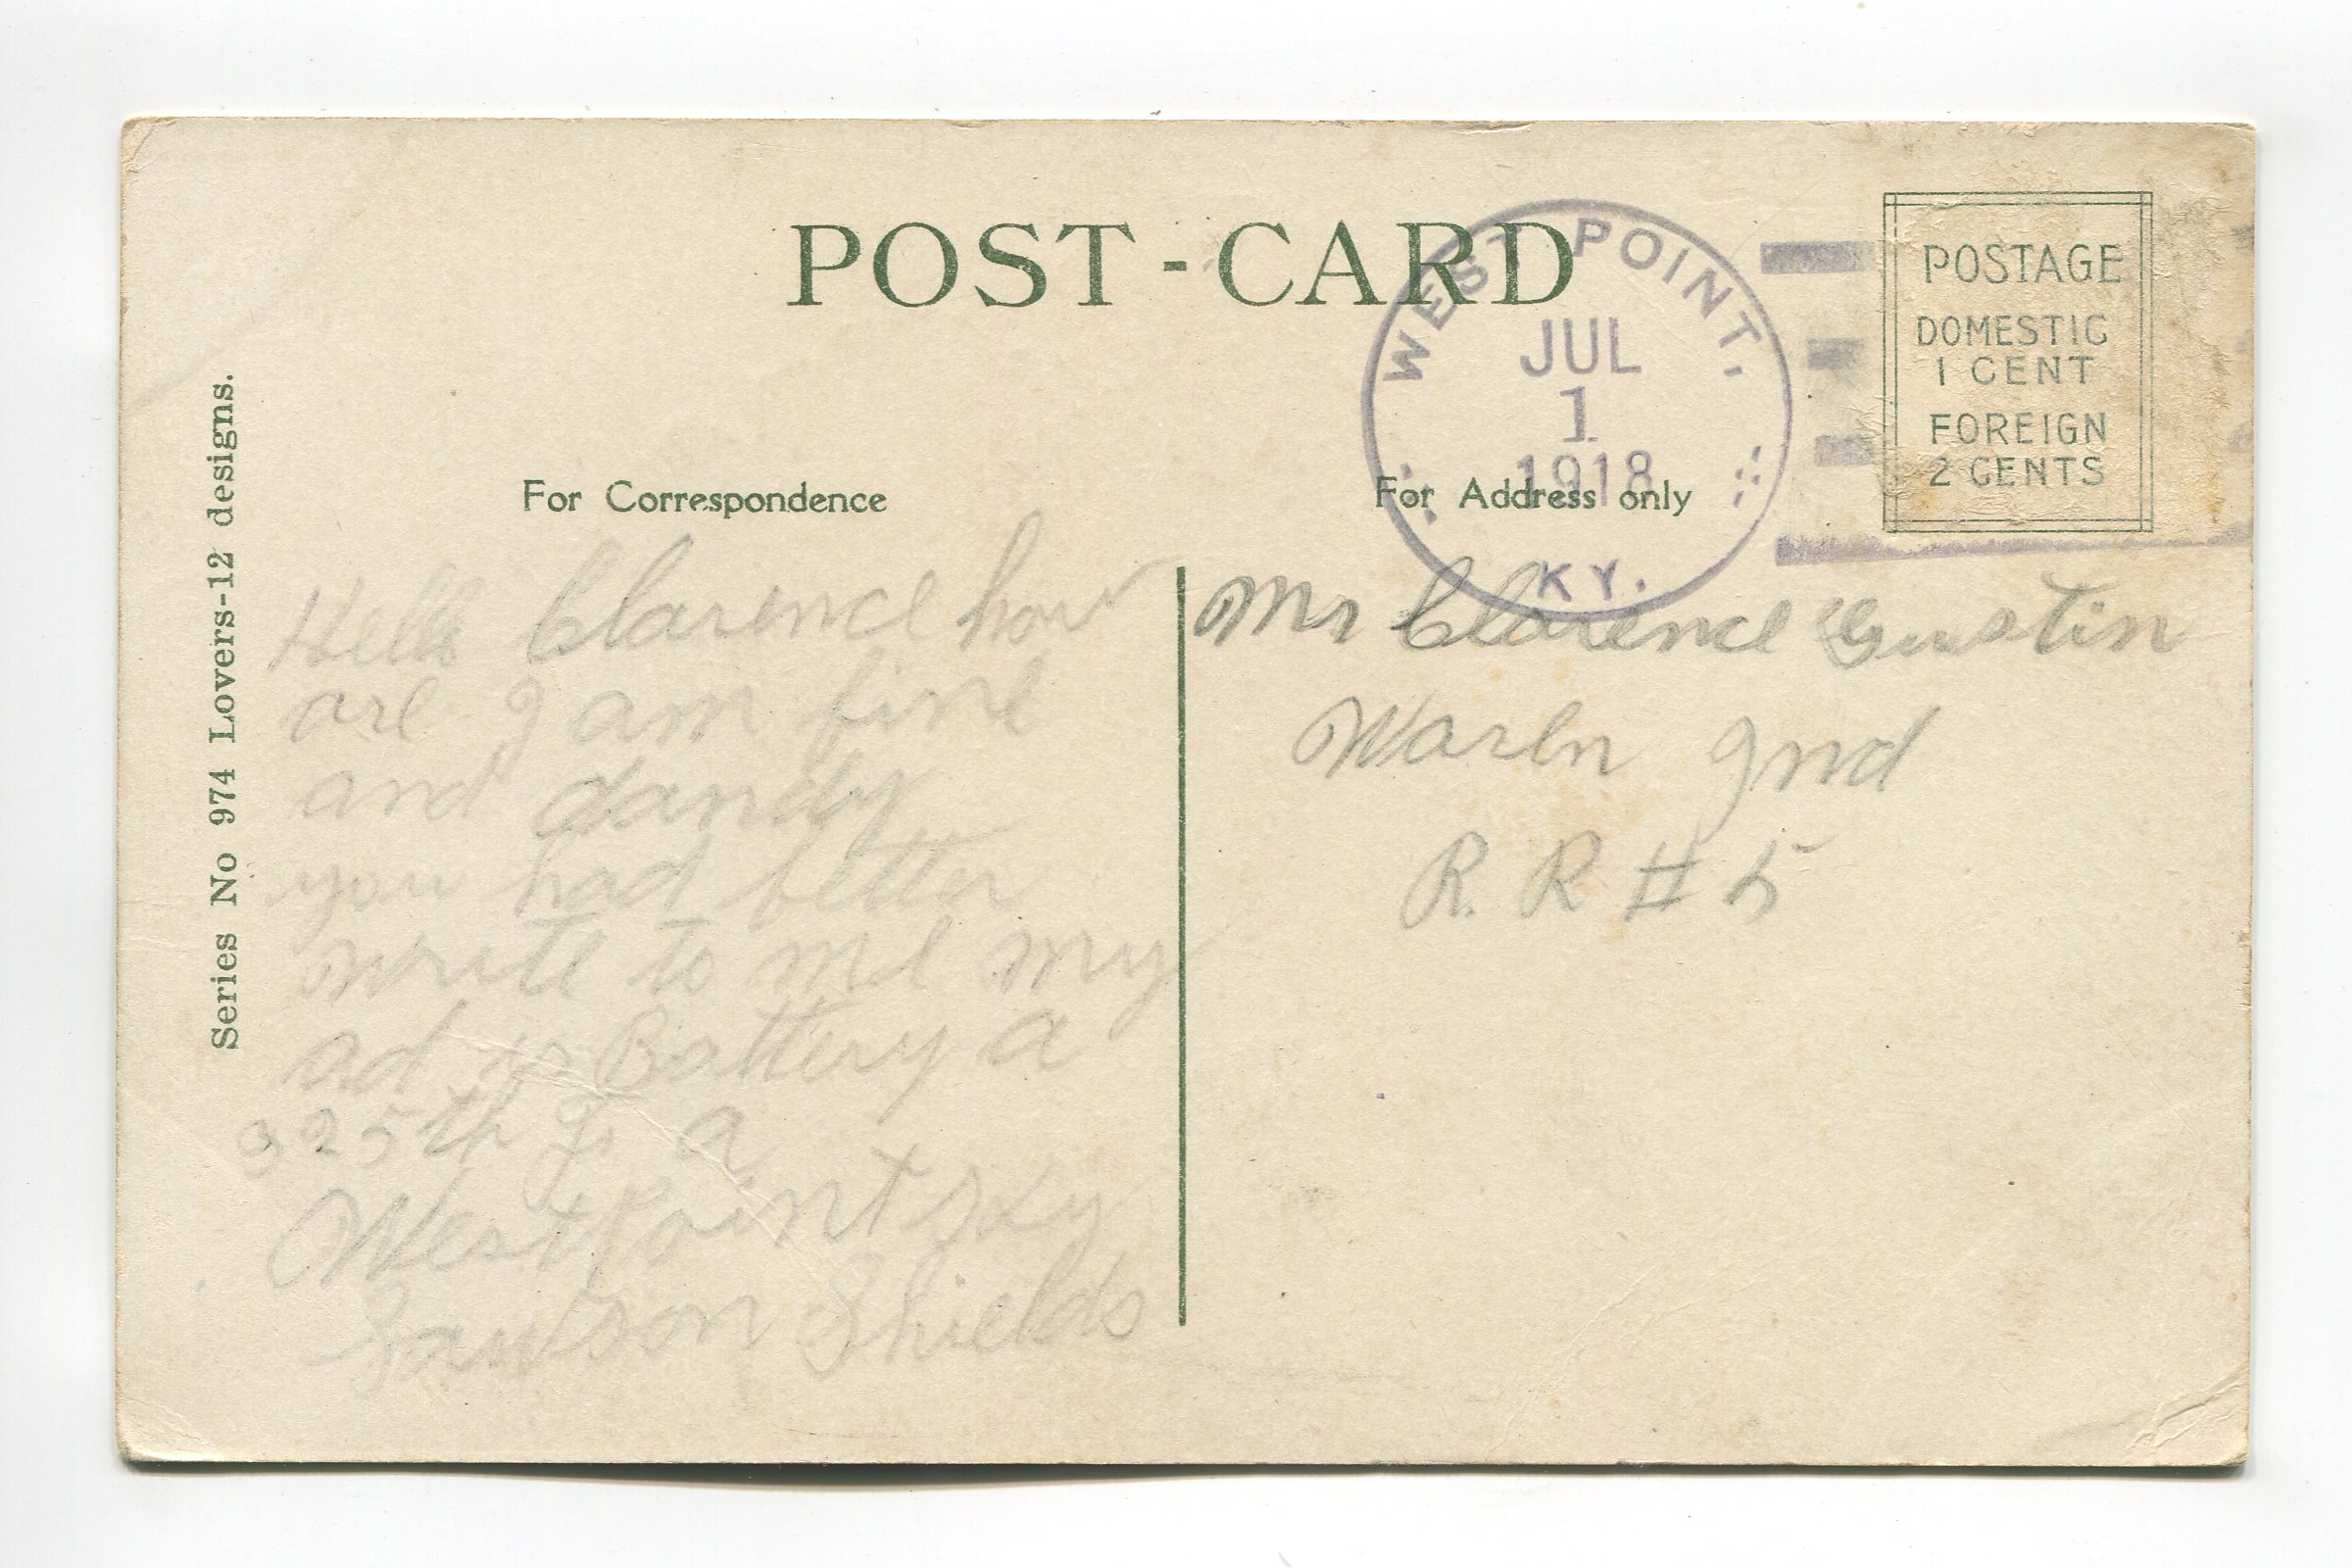 POST-CARD
WEST POINT,
JUL
1
1918
KY.
POSTAGE
DOMESTIC
1 CENT
FOREIGN
2 CENTS
Series No 974 Lovers-12 designs.
For Correspondence
Hello Clarence how
are I am fine
and dandy
you had better
write to me my
ad is Battery a
325th F. a
West Point Ky
Lawson Shields
For Address only
Mr Clarence Gustin
Waren Ind
R. R # 5